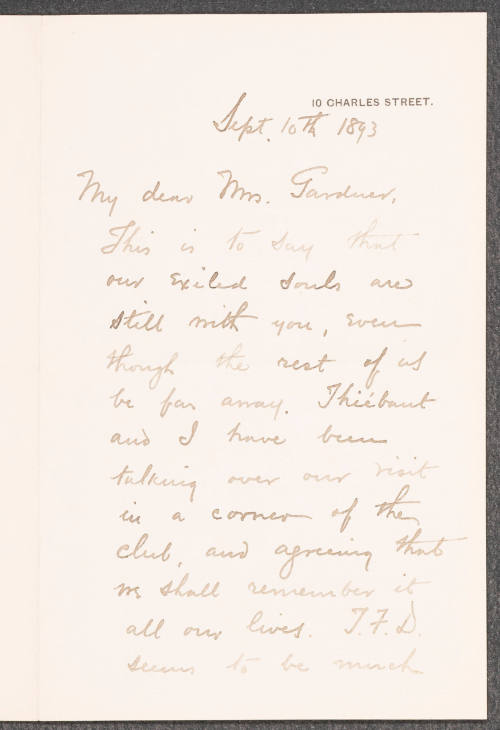 10 CHARLES STREET.
Sept. 10th 1893
My dear Mrs. Gardner,
This is to say that
our exiled souls are
still with you, even
though the rest of us
be far away. Thiébaut
and I have been
talking over our visit
in a corner of the
club, and agreeing that
we shall remember it
all our lives. T.F.D.
seems to be much